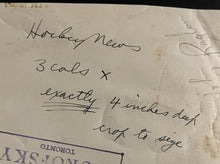 Hockey News
3 cols x
exactly 4 inches deep
crop to size
OFSKY
TORONTO